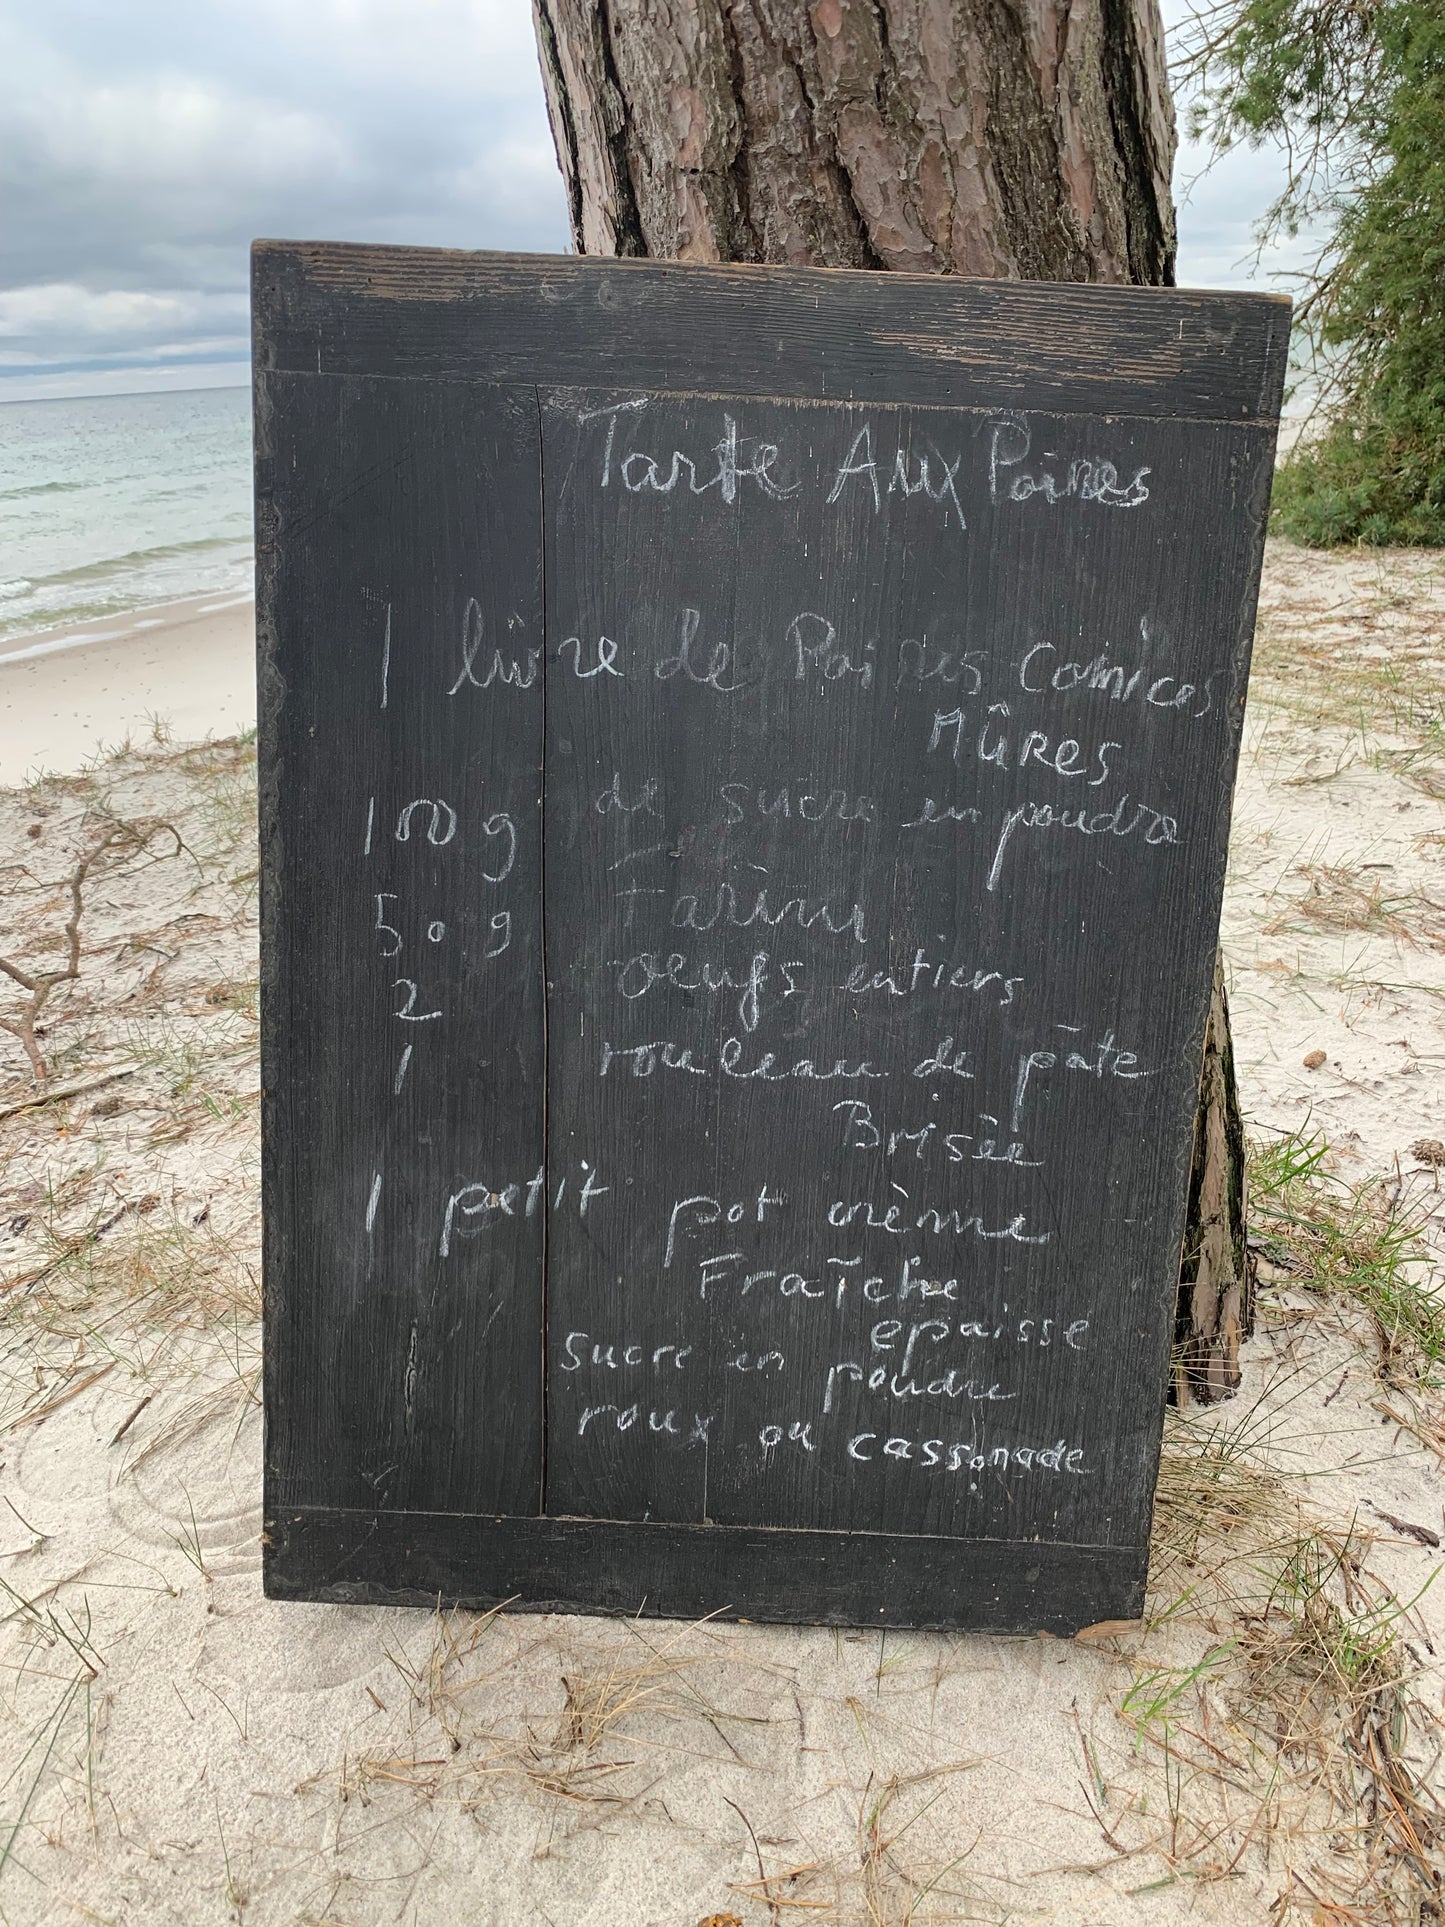 Tarte Aux Poires
1 livre de Poires Comices
MÛRes
100 g de sucre en poudre
50 g Farine
2 oeufs entiers
1 rouleau de pâte
Brisée
1 petit pot crème
Fraîche
epaisse
sucre en poudre
roux ou cassonade